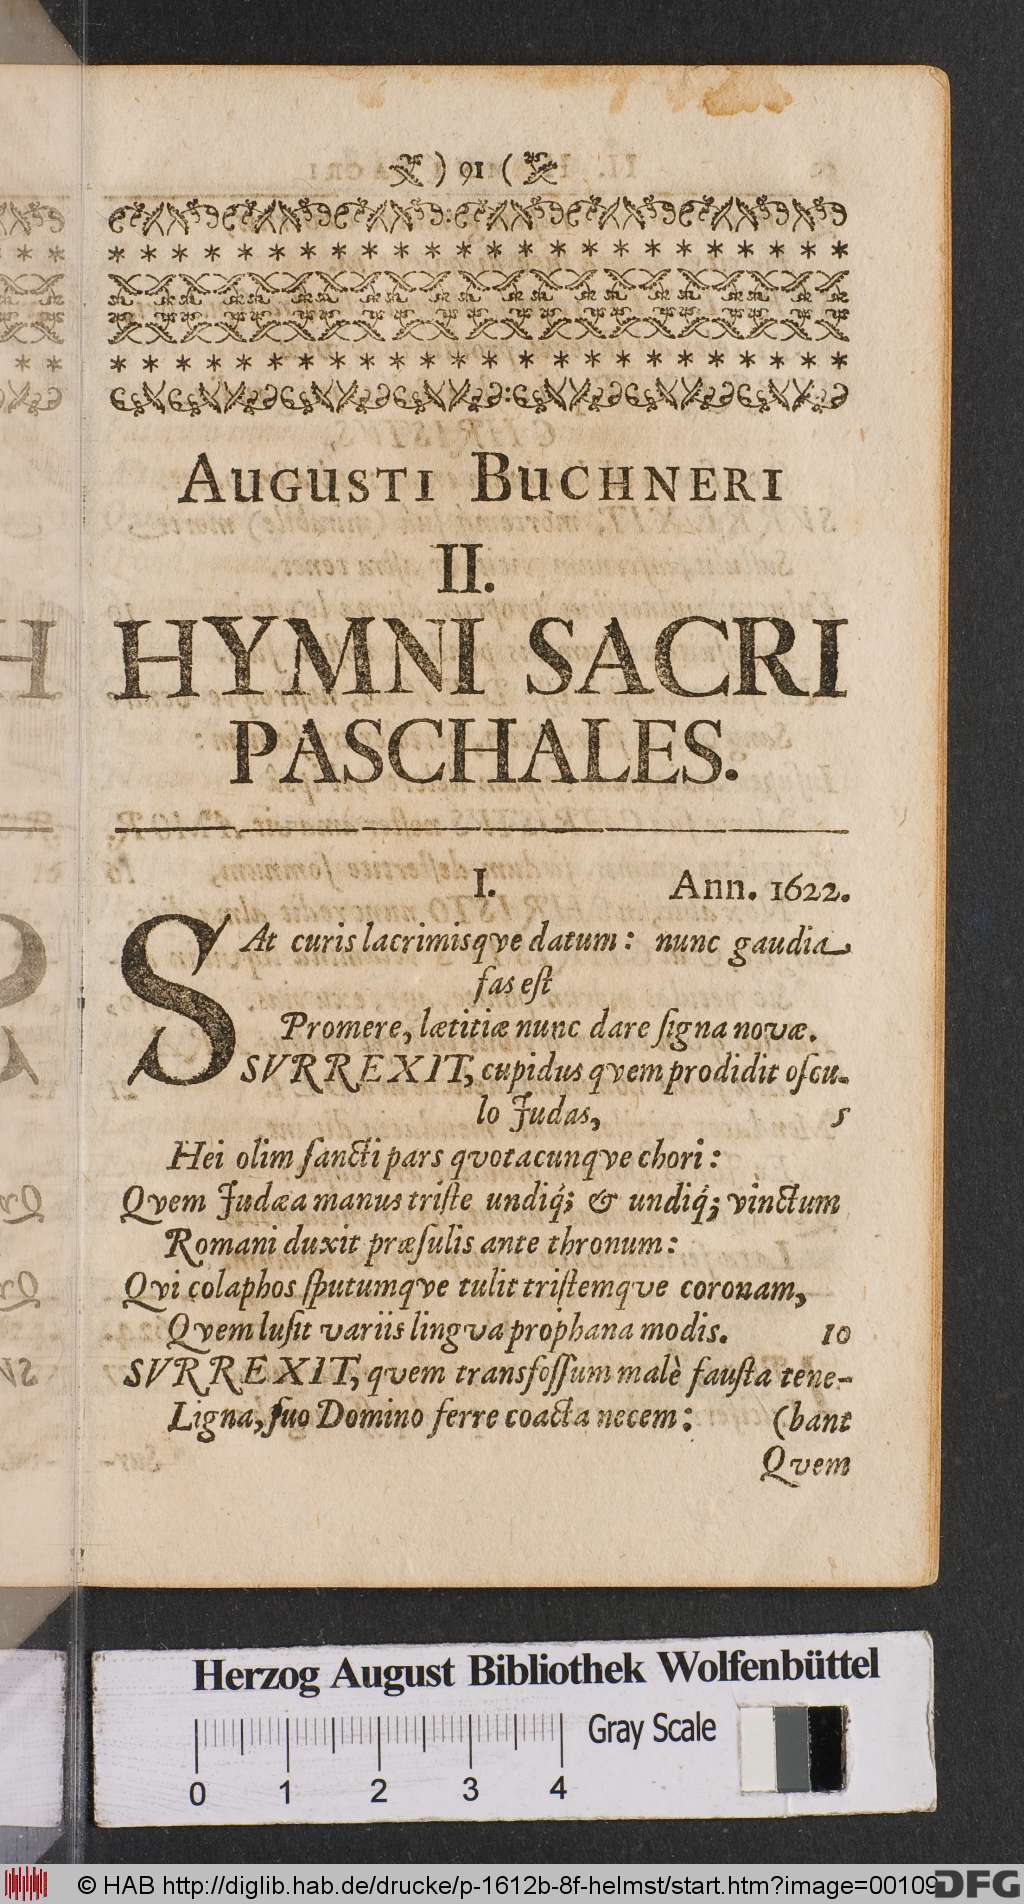 ) 91 (
AUGUSTI BUCHNERI
II.
HYMNI SACRI
PASCHALES.
I. Ann. 1622.
SAt curis lacrimisqve datum: nunc gaudia
fas eſt
Promere, lætitiæ nunc dare ſigna novæ.
SVRREXIT, cupidus qvem prodidit oſcu-
lo Judas, 5
Hei olim ſancti pars qvotacunqve chori:
Qvem Judæa manus triſte undiq́; & undiq́; vinctum
Romani duxit præſulis ante thronum:
Qvi colaphos ſputumqve tulit triſtemqve coronam,
Qvem luſit variis lingva prophana modis. 10
SVRREXIT, qvem transfoſſum malè fauſta tene-
Ligna, ſuo Domino ferre coacta necem: (bant
Qvem
Herzog August Bibliothek Wolfenbüttel
Gray Scale
0 1 2 3 4
© HAB http://diglib.hab.de/drucke/p-1612b-8f-helmst/start.htm?image=00109
DFG